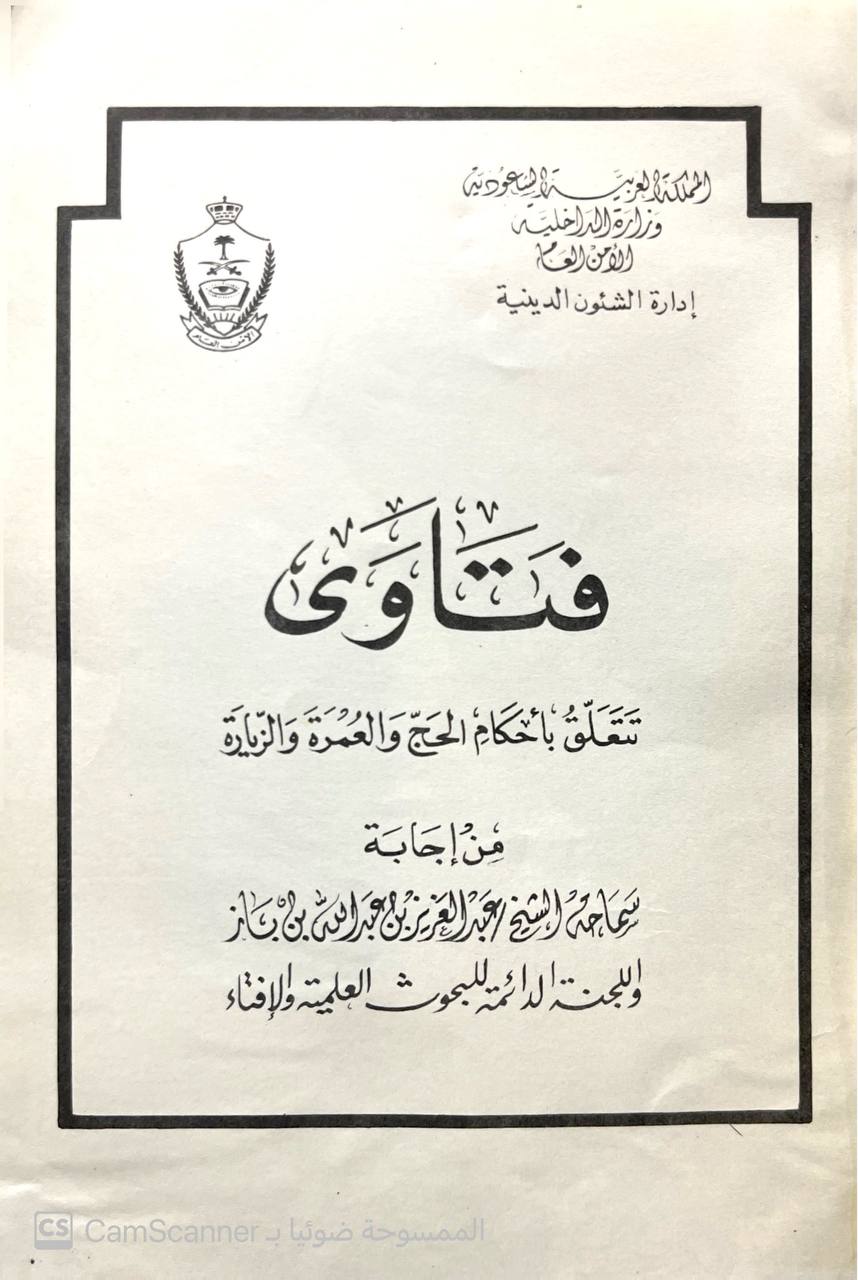 المملكة العربية السعودية
وزارة الداخلية
الأمن العام
إدارة الشئون الدينية
الأمن العام
فَتَاوَى
تَتَعَلَّقُ بأَحْكَامِ الحَجّ وَالعُمْرَة وَالزّيَارَة
مِنْ إجَابَة
سَمَاحَة الشيخ / عَبْد العَزيز بْن عَبد الله بْن بَاز
واللجنة الدائمة للبحوث العلمية والإفتاء
CS CamScanner الممسوحة ضوئيا بـ